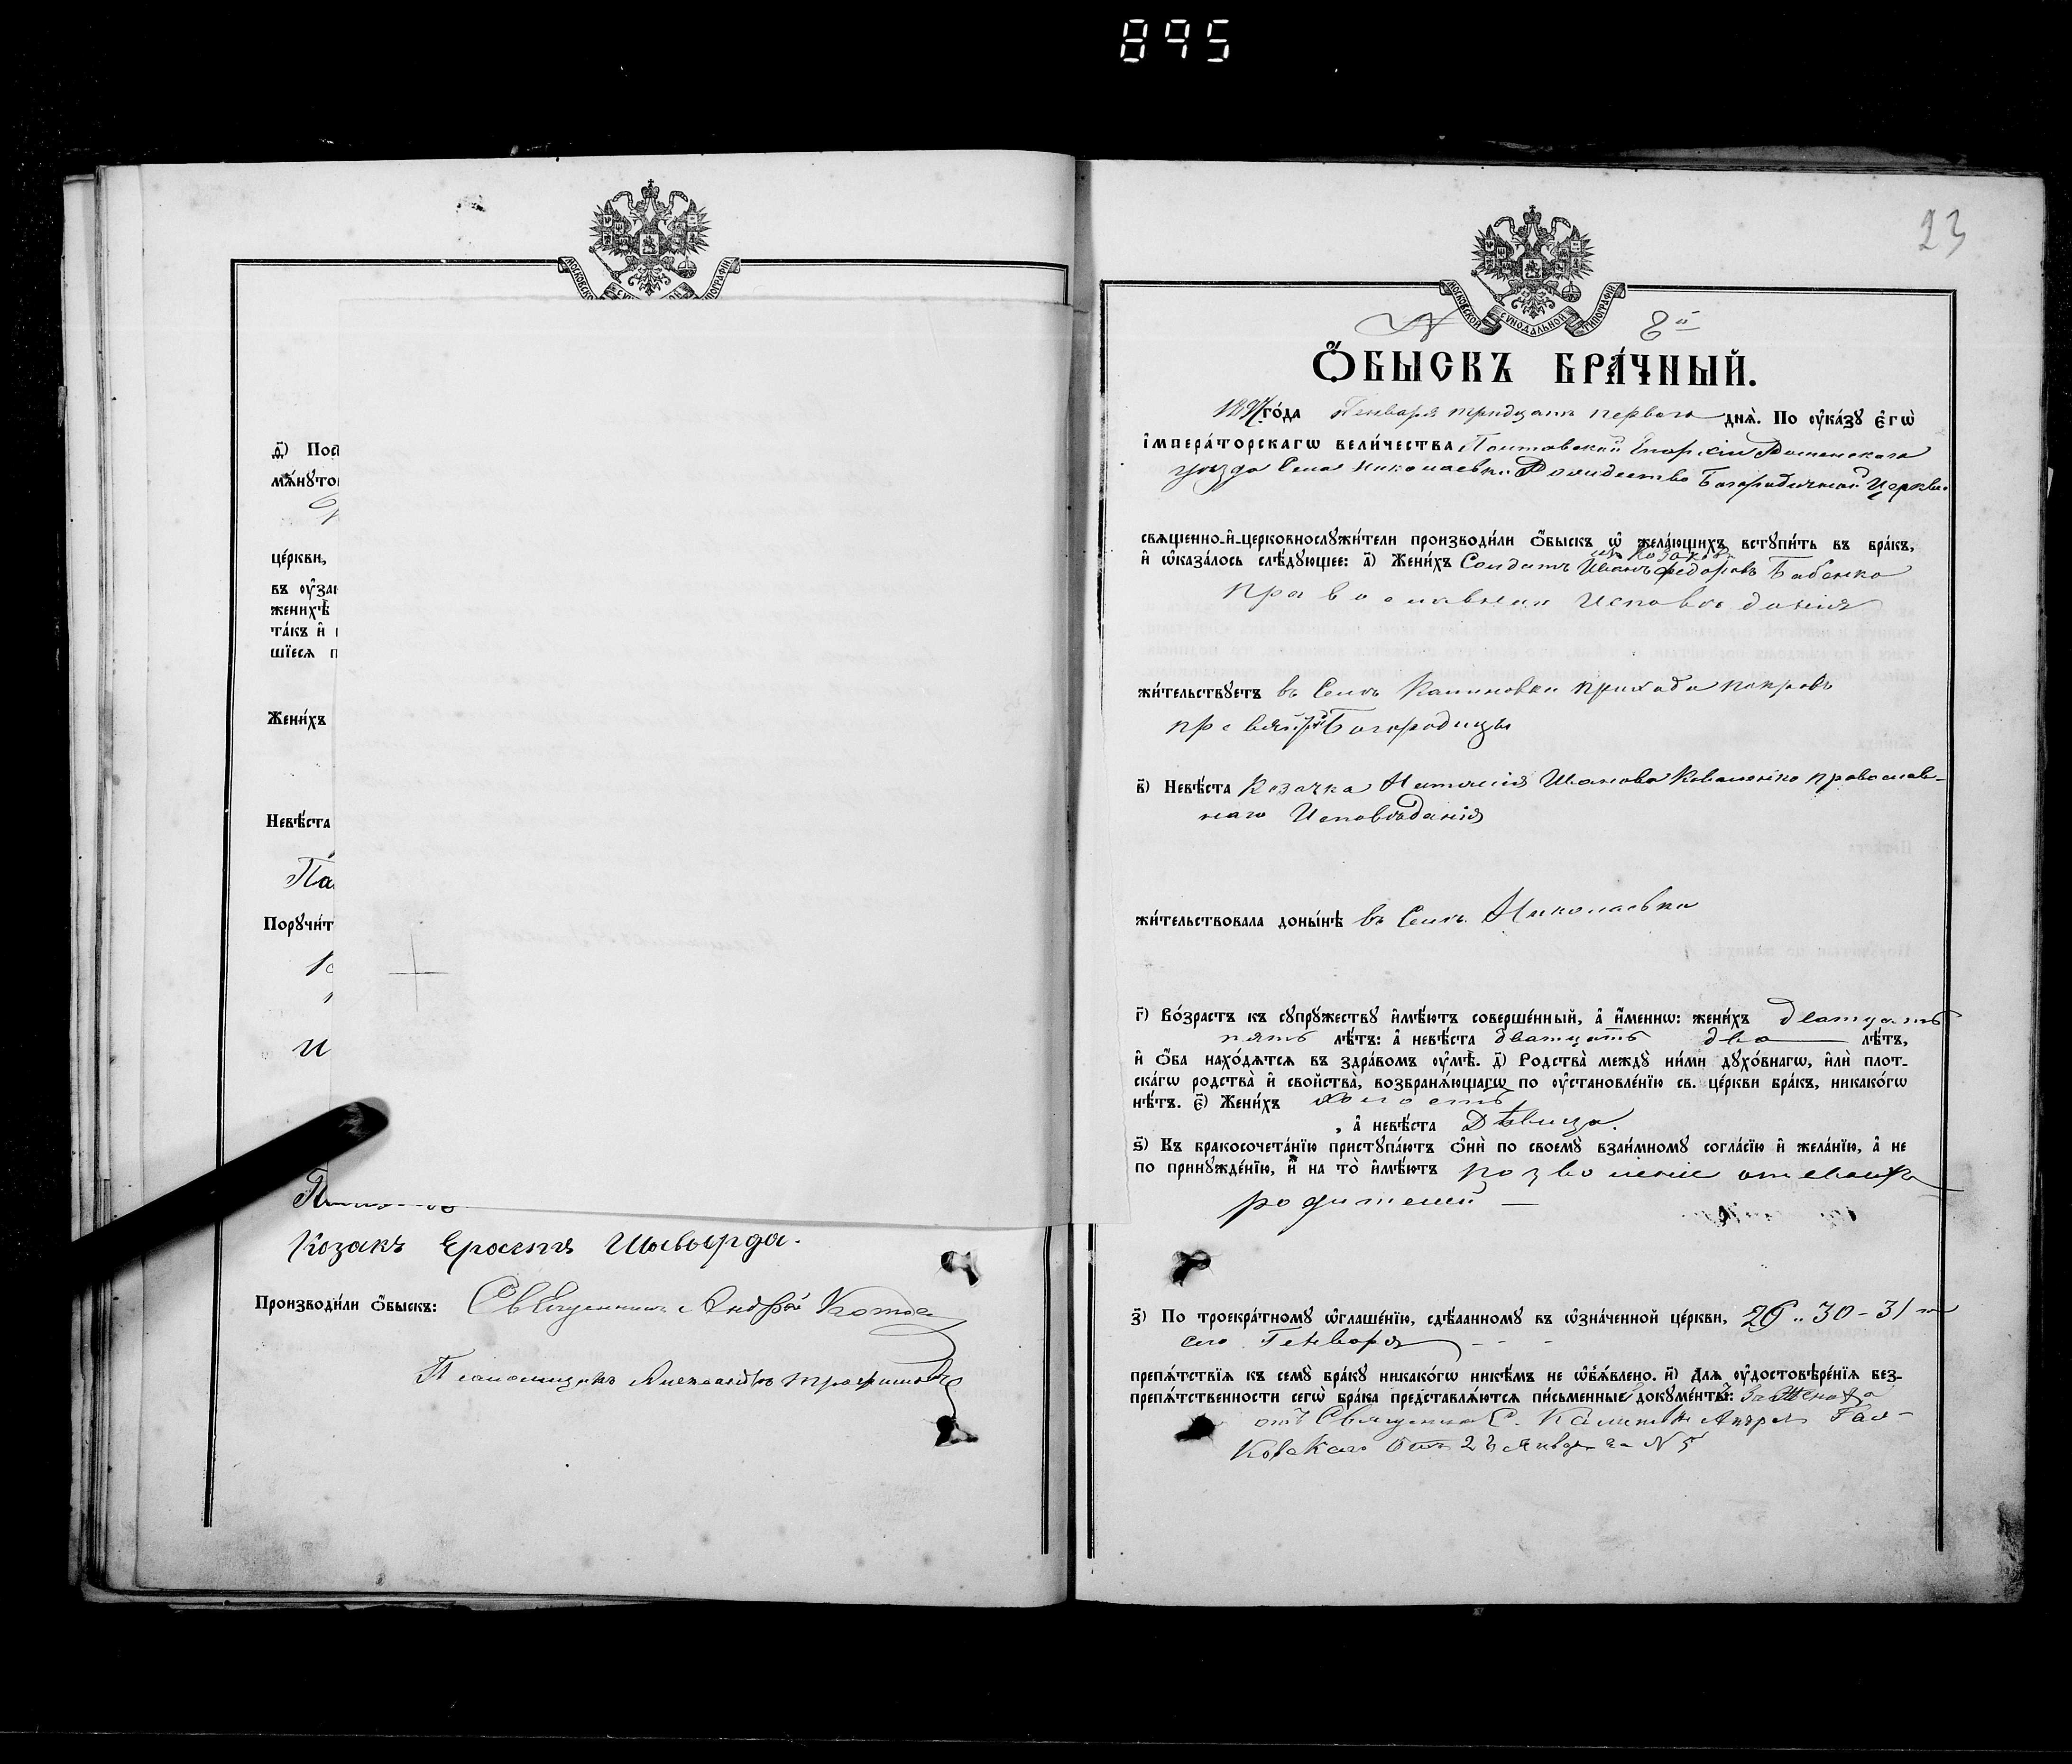 895
МОСКОВСКОЙ СѴНОДАЛЬНОЙ ТИПОГРАФІИ
д҃) Пос
мѧнꙋто
це́ркви,
въ оу҆за
женихѣ̀
та́къ и҆
шїесѧ п
Жени́хъ
Невѣ́ста
Па
Порꙋчи́т
И
Козакъ Ерастъ Шаваярда.
Производи́ли ѻ҆́быскъ: Священникъ Андрей
Псаломщикъ
23
МОСКОВСКОЙ СѴНОДАЛЬНОЙ ТИПОГРАФІИ
№ 8й
Ѻ҆́БЫСКЪ БРА́ЧНЫЙ.
1897 го́да Генваря тридцать первого днѧ̀. По оу҆ка́зꙋ є҆гѡ̀
і҆мпера́торскагѡ вели́чества Полтавской Епархіи Роменского
уезда Села Николаевки Рождество Богородичной Церкви
свѧщенно-и҆-церковнослꙋжи́тели производи́ли ѻ҆́быскъ ѡ҆ жела́ющихъ встꙋпи́ть въ бра́къ,
изъ Козаковъ
и҆ ѡ҆каза́лось слѣ́дꙋющее: а҃) Жени́хъ Солдатъ Иванъ Федоровъ Бабенко
православнаго Исповѣданія
жи́тельствꙋетъ въ Селѣ Калиновки прихода покровъ
Богородицы
в҃) Невѣ́ста Козачка Наталия Иванова Коваленко православ-
наго Исповѣданія
жи́тельствовала доны́нѣ въ Селѣ Николаевки
г҃) Во́зрастъ къ сꙋпрꙋ́жествꙋ и҆мѣ́ютъ соверше́нный, а҆ и҆́менно: жени́хъ дватцать
пять лѣ́тъ: а҆ невѣ́ста дватцать два лѣ́тъ,
и҆ ѻ҆́ба нахо́дѧтсѧ въ здра́вомъ оу҆мѣ̀. д҃) Родства̀ междꙋ̀ ни́ми дꙋхо́внагѡ, и҆лѝ плот-
ска́гѡ родства̀ и҆ свойства̀, возбранѧ́ющагѡ по оу҆становле́нїю св. це́ркви бра́къ, никако́гѡ
нѣ́тъ. є҃) Жени́хъ холостъ
, а҆ невѣ́ста Дѣвица.
ѕ҃) Къ бракосочета́нїю пристꙋпа́ютъ ѻ҆нѝ по своемꙋ̀ взаи́мномꙋ согла́сїю и҆ жела́нїю, а҆ не
по принꙋжде́нїю, и҆ на то̀ и҆мѣ́ютъ позволеніе от своихъ
родителей —
з҃) По троекра́тномꙋ ѡ҆глаше́нїю, сдѣ́ланномꙋ въ ѡ҆зна́ченной це́ркви, 26 .. 30 - 31 го
сего Генваря
препѧ́тствїѧ къ семꙋ̀ бра́кꙋ никако́гѡ никѣ́мъ не ѡ҆б̾ѧ́влено. и҃) Длѧ оу҆достовѣре́нїѧ без-
препѧ́тственности сегѡ̀ бра́ка представлѧ́ютсѧ пи́сьменные докꙋме́нты: За Жениха
отъ Священика С. Калиновки Андрея Гал-
ковского отъ 23 Января за № 5